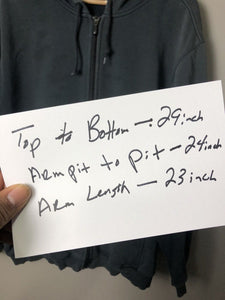 Top to Bottom — : 29 inch
Arm pit to pit — 24 inch
Arm Length — 23 inch